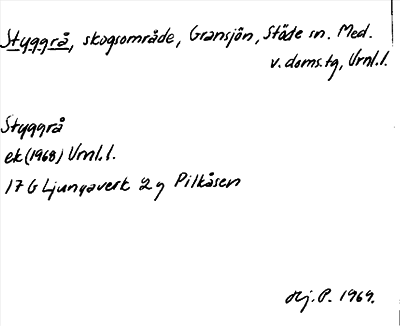 Styggrå, skogsområde, Gransjön, Stöde sn. Med.
v. doms.tg, Vrnl.l.
Styggrå
ek (1968) Vrnl.l.
17 G Ljungaverk 2 g Pilkåsen
Hj. P. 1969.